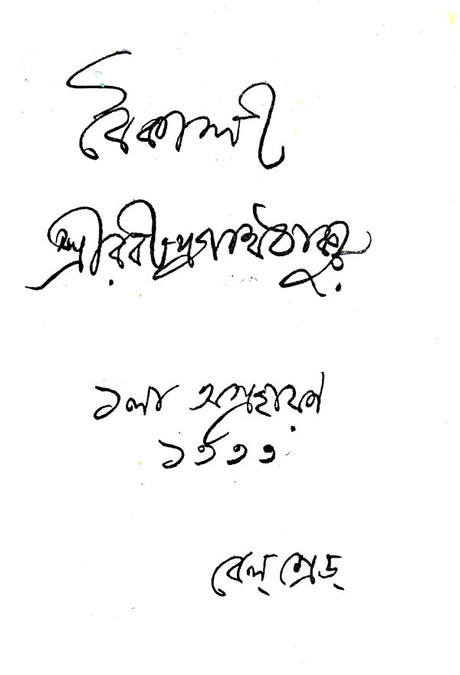 বৈকালী
শ্রীরবীন্দ্রনাথ ঠাকুর
১লা অগ্রহায়ণ
১৩৩৩
বেল্‌গ্রেড্‌